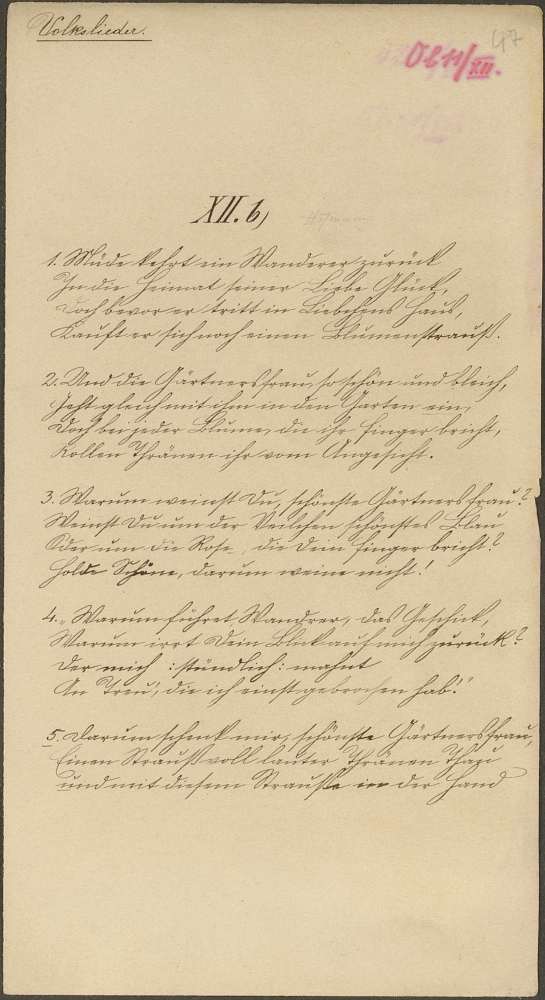 Volkslieder.
47
Ob 11/XII.
XII. b,
1. Müde kehrt ein Wanderer zurück
In die Heimat seiner Liebe Glück,
Doch bevor er tritt in Liebchens Haus,
Kauft er sich noch einen Blumenstrauß.
2. Und die Gärtnersfrau, so schön und bleich,
Geht gleich mit ihm in den Garten ein,
Doch bei jeder Blume, die ihr Finger bricht,
Rollen Thränen ihr vom Angesicht.
3. Warum weinst Du, schönste Gärtnersfrau?
Weinst Du um der Veilchen schönstes Blau
Oder um die Rose, die Dein Finger bricht?
Holde Schöne, darum weine nicht!
4. „Warum führet, Wandrer, das Geschick,
Warum irrt Dein Blick auf mich zurück?
Der mich :stündlich: mahnt
An Treu', die ich einst gebrochen hab'!"
5. Darum schenk mir, schönste Gärtnersfrau,
Einen Strauß voll lauter Thränen Thau
und mit diesem Strauße in der Hand